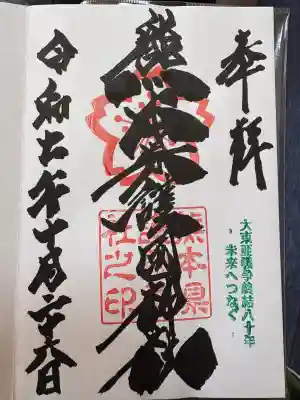 奉拝
大東亜戦争終結八十年
未来へつなぐ
熊本県護國神社
熊本県
護國神
社之印
令和七年十月二十六日